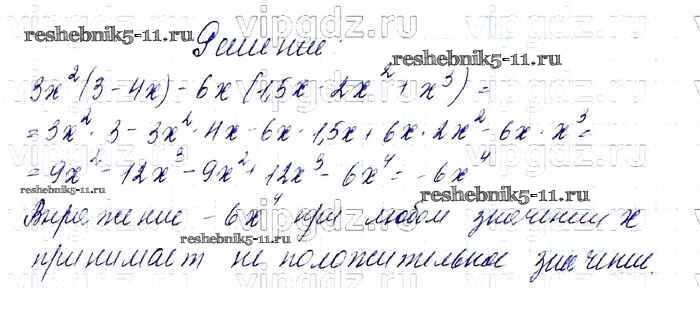 vipgdz.ru vipgdz.ru
reshebnik5-11.ru Решение: reshebnik5-11.ru
3x²(3-4x)-6x(1,5x-2x²+x³)=
=3x²·3-3x²·4x-6x·1,5x+6x·2x²-6x·x³=
=9x²-12x³-9x²+12x³-6x⁴=-6x⁴
reshebnik5-11.ru reshebnik5-11.ru
Выражение -6x⁴ при любом значении x
reshebnik5-11.ru
принимает не положительное значение.
vipgdz.ru vipgdz.ru